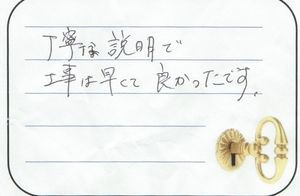 丁寧な説明で
工事は早くて良かったです。